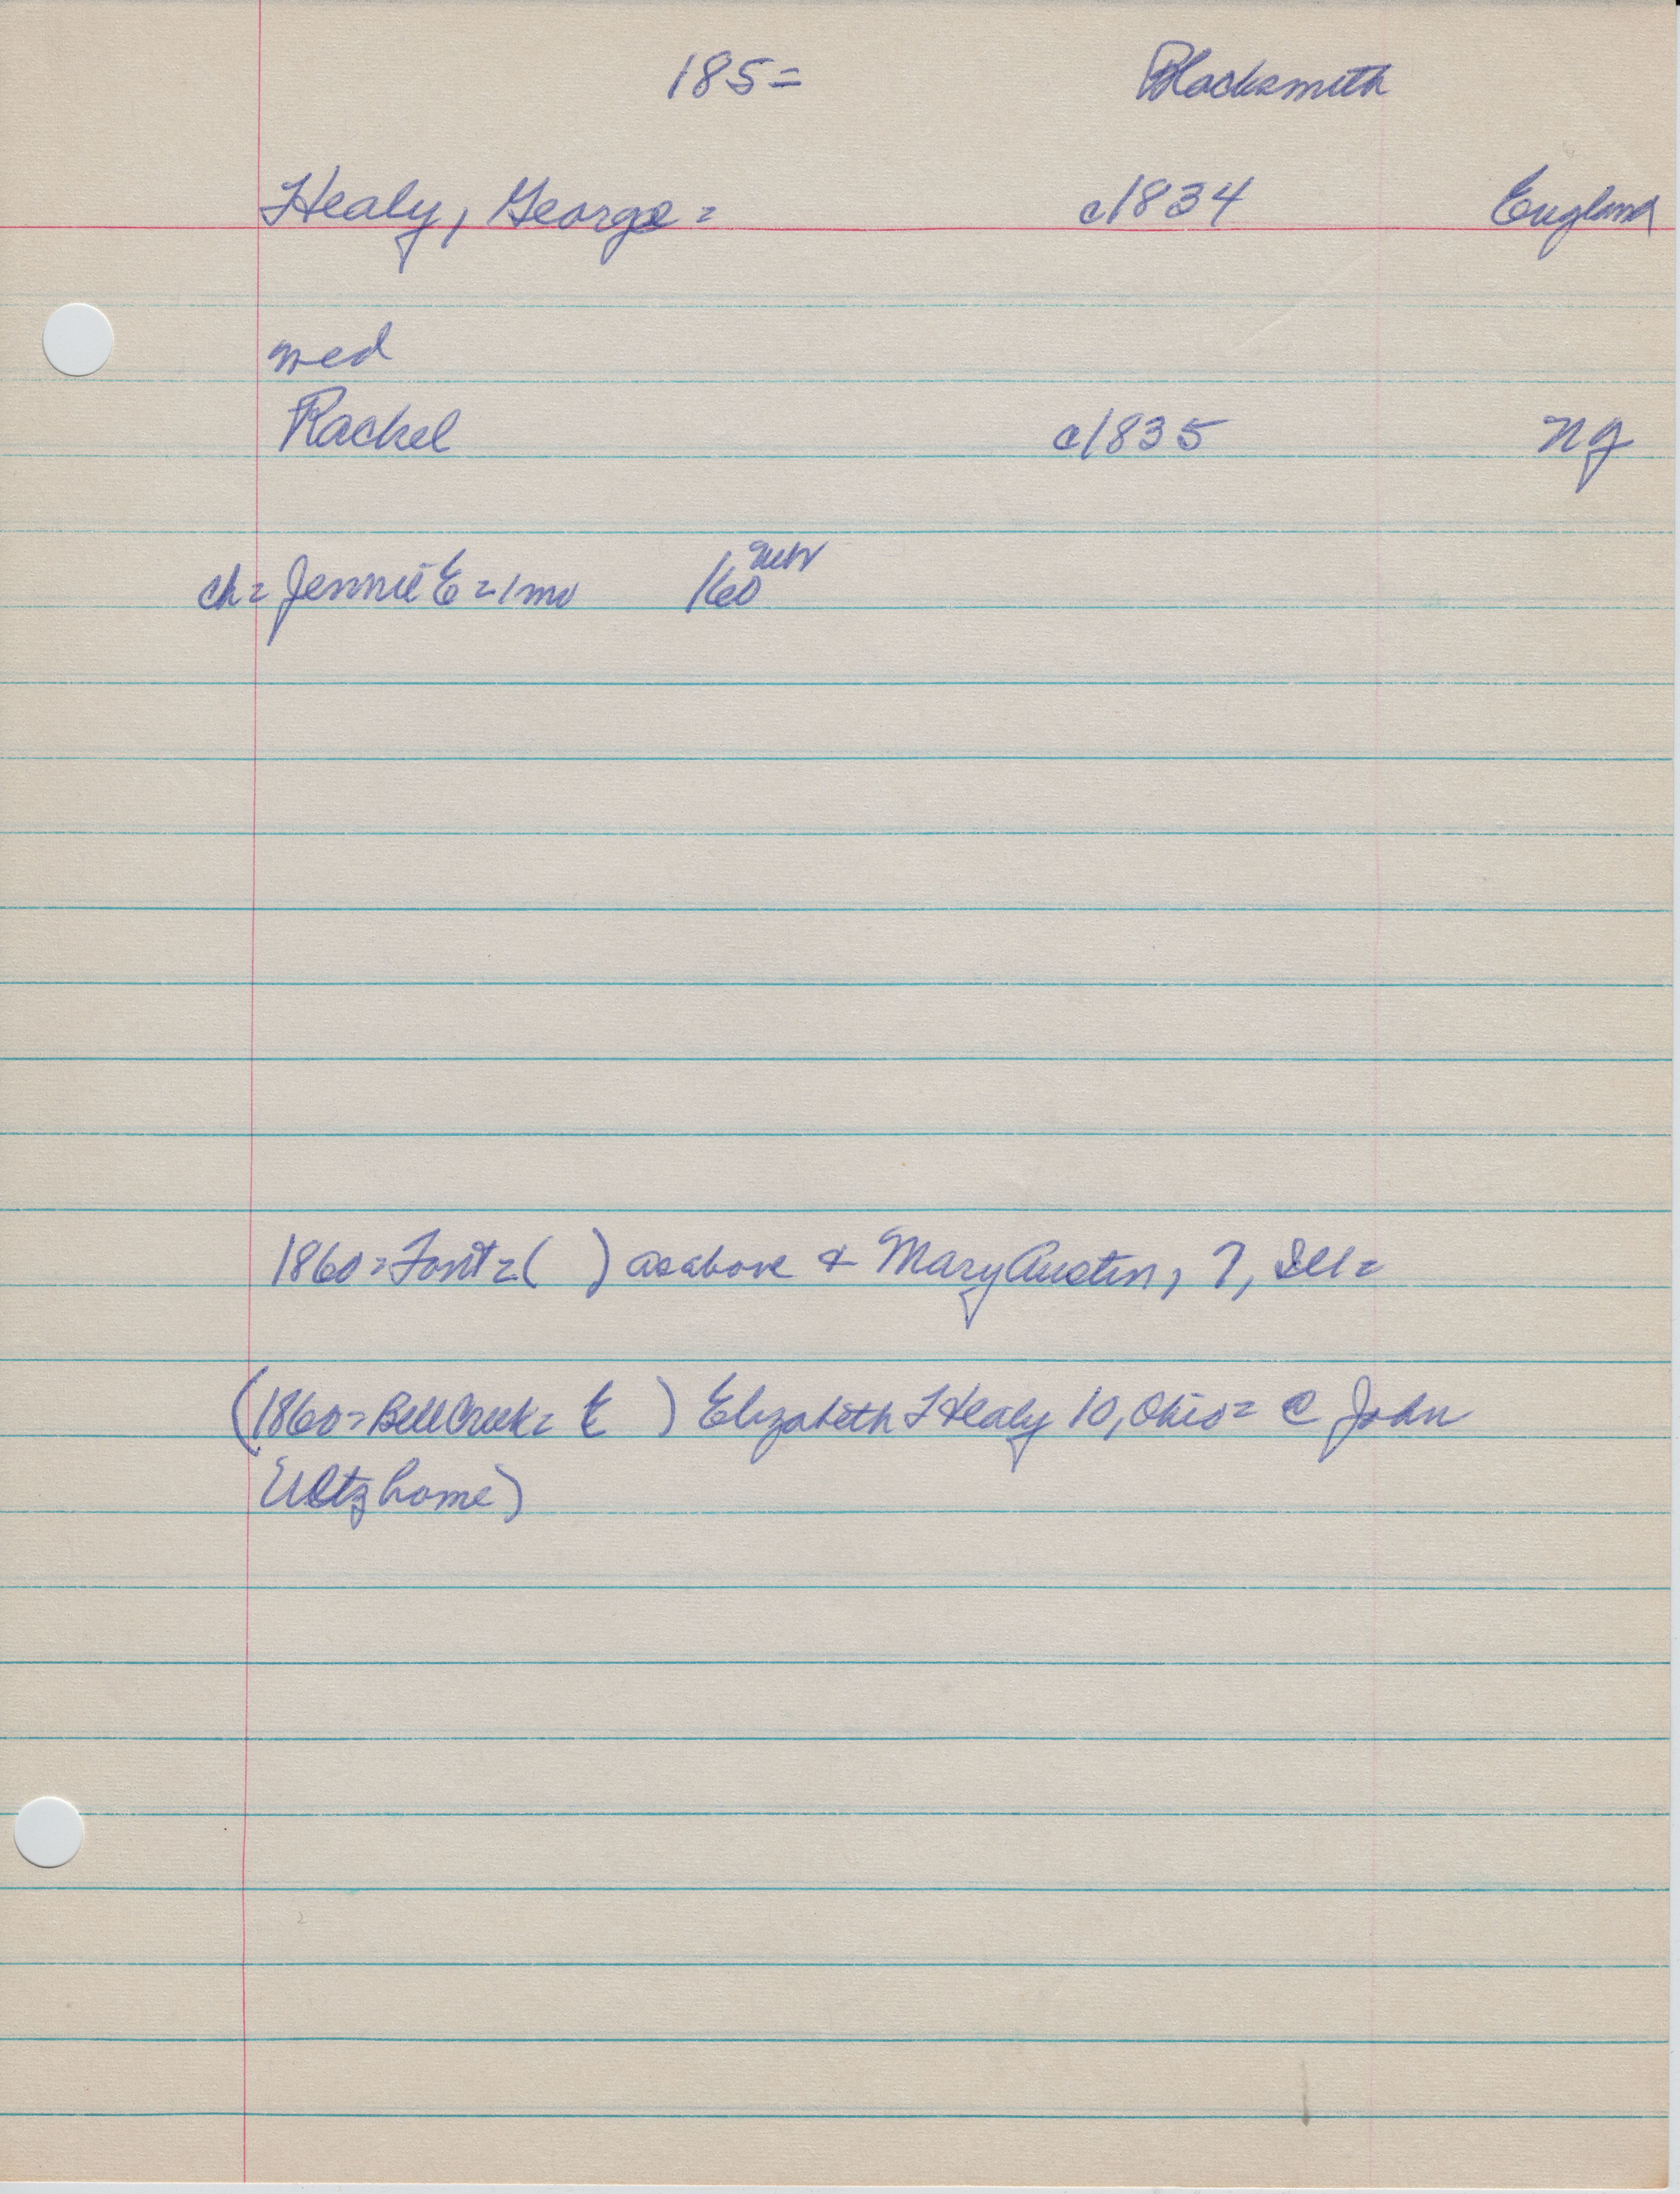 185= Blacksmith
Healy, George = c1834 England
med
Rachel c1835 NJ
ch = Jennie E = 1 mo /60
1860 = Font = ( ) as above & Mary Austin, 7, Ill =
(1860 = Bell Creek = E ) Elizabeth F Healy 10, Ohio = C John
Ultz home)